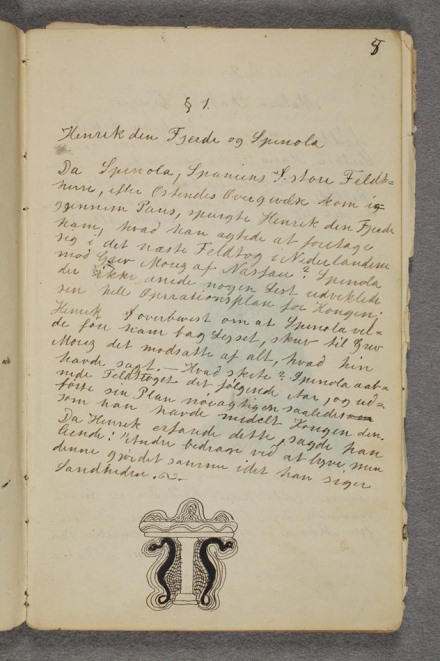 8
§ 1.
Henrik den Fjerde og Spinola
Da Spinola, Spaniens store Feldt-
herre, efter Ostendes Overgivelse kom i-
gjennem Paris, spurgte Henrik den Fjerde
ham, hvad han agtede at foretage
sig i det næste Feldtog i Nederlandene
mod Grev Moriz af Nassau? Spinola
der ikke anede nogen List udviklede
sin hele Operationsplan for Kongen.
Henrik, overbevist om at Spinola vil-
de føre ham bag Lyset, skrev til Grev
Moriz det modsatte af alt, hvad hin
havde sagt. — Hvad skete? Spinola aab-
nede Feldttoget det følgende Aar, og ud-
førte sin Plan nøiagtigen saaledes
som han havde meddelt Kongen den.
Da Henrik erfarede dette, sagde han
leende: "Andre bedrage ved at lyve, men
denne gjør det samme idet han siger
Sandheden.